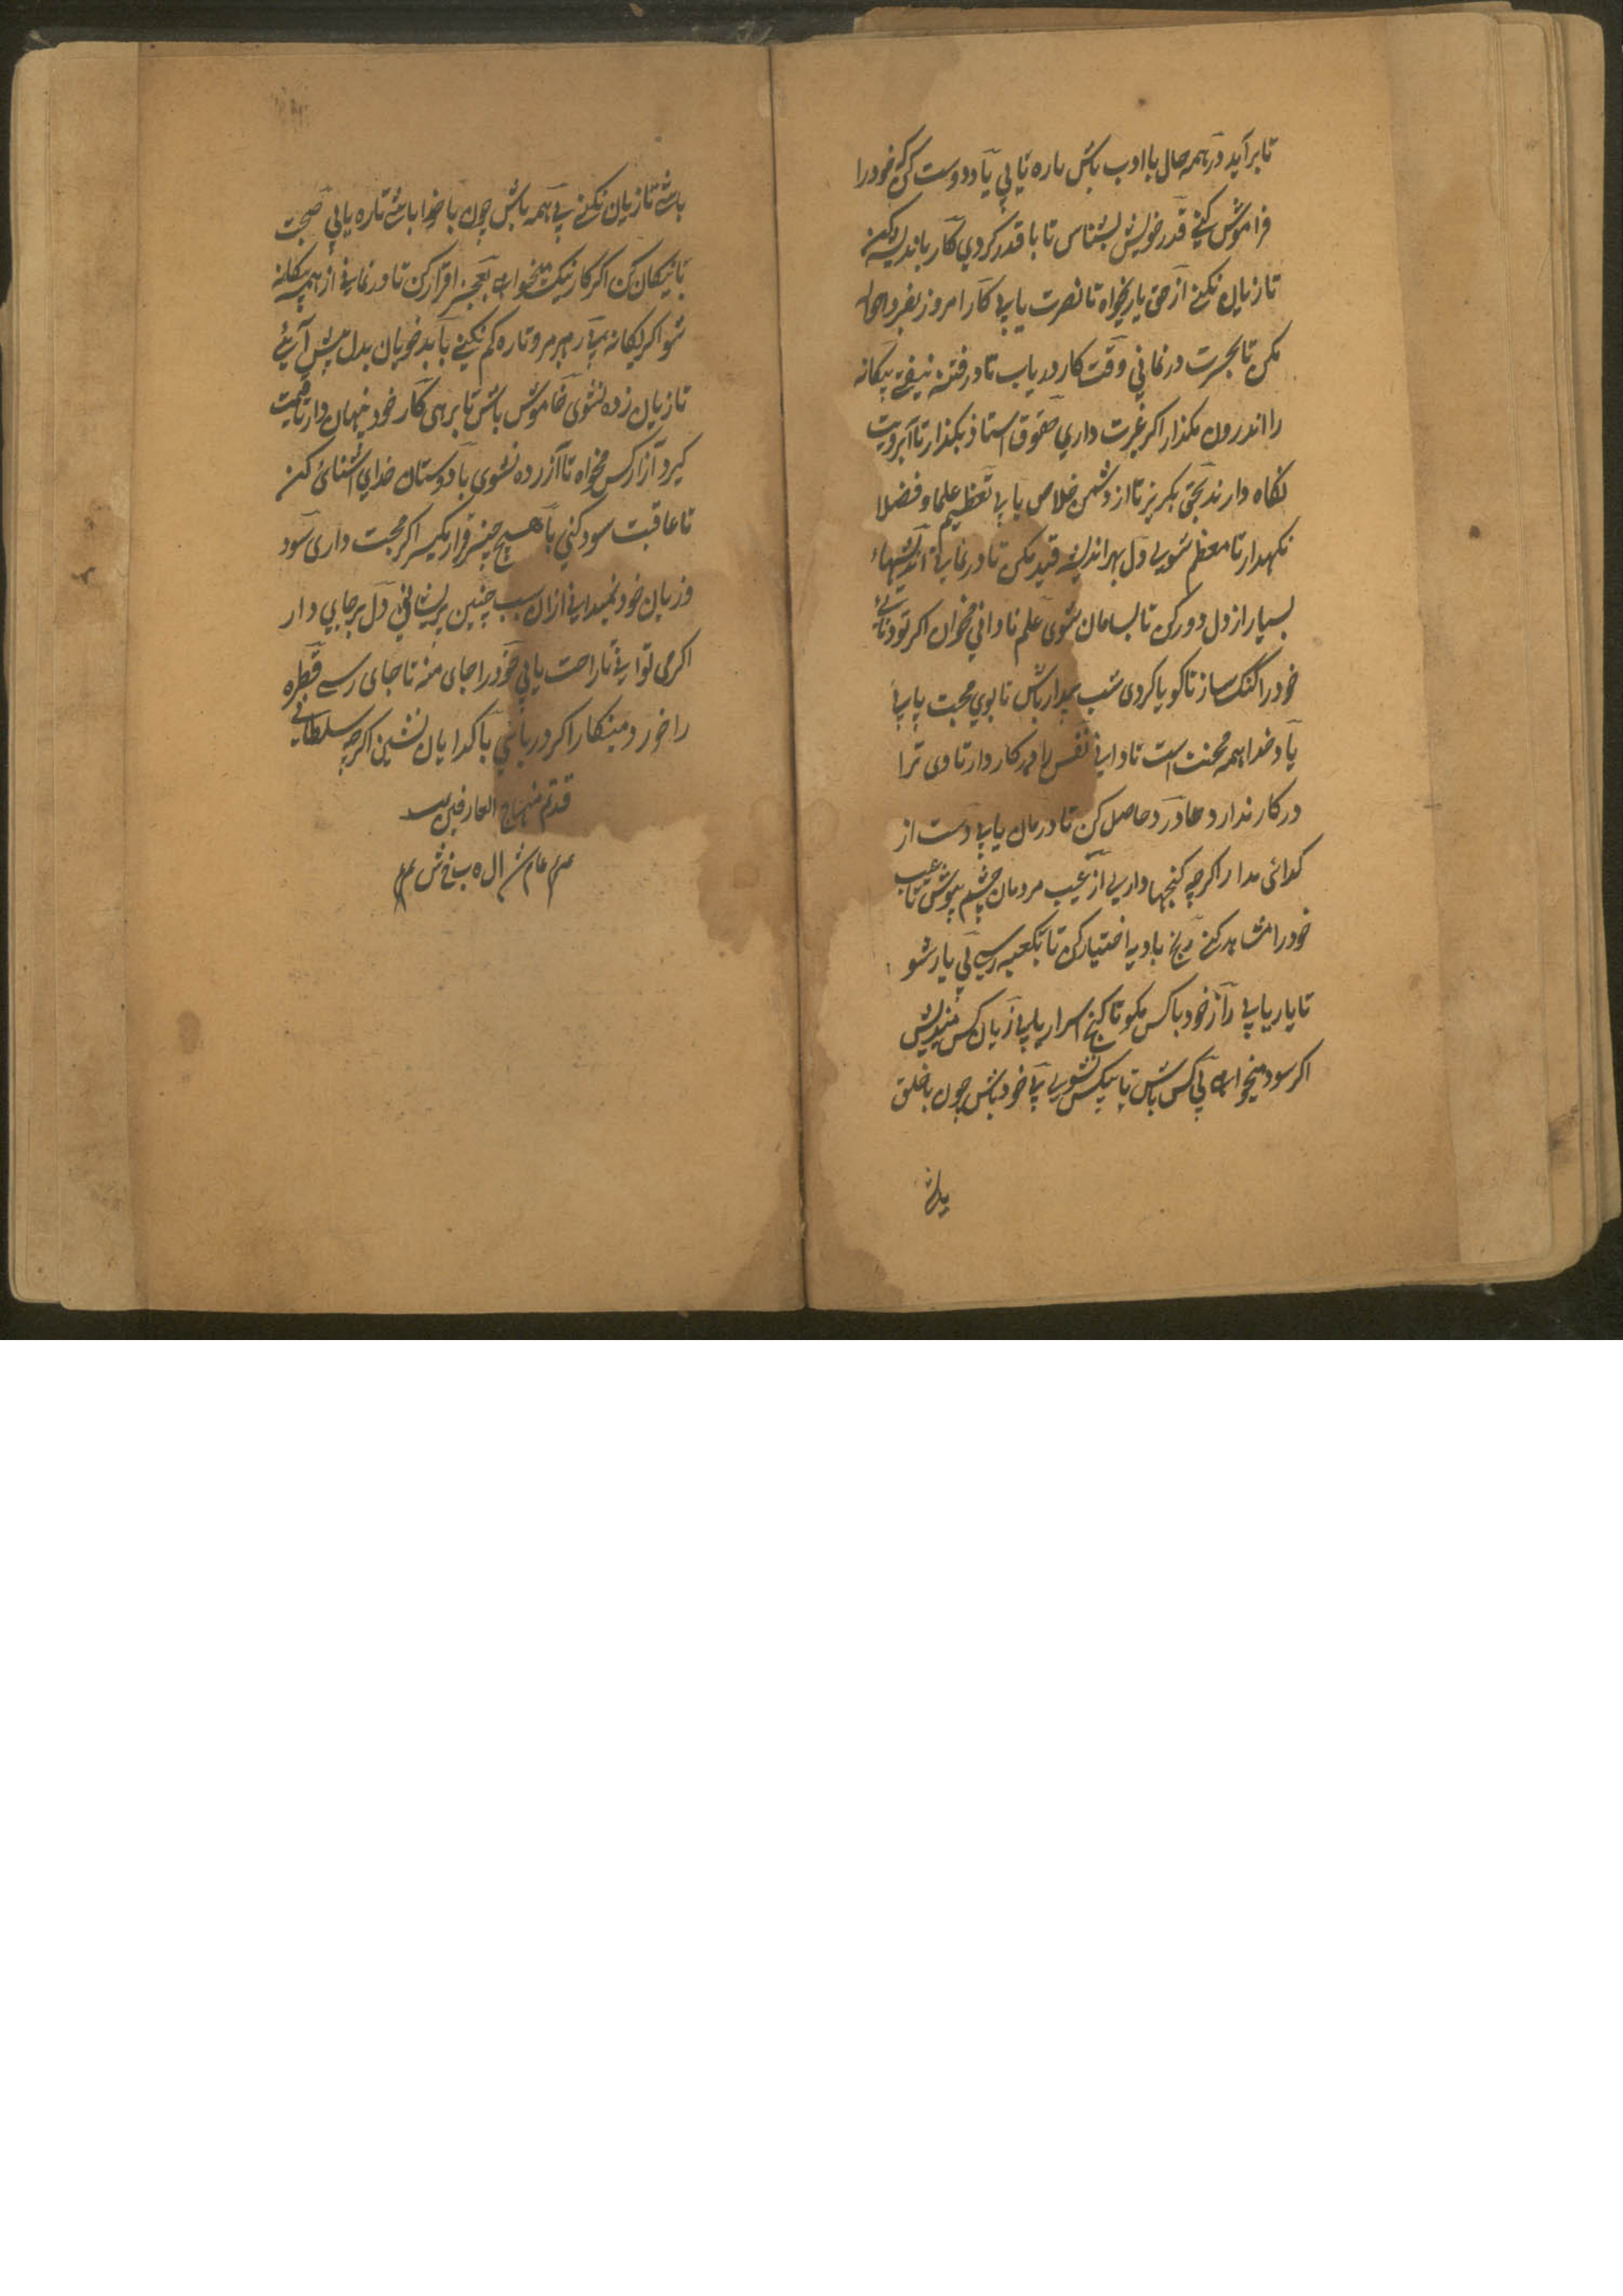 تا برآید در همه حال با ادب باش تا ره یابی یاد دوست کن گر خود را
فراموش کنی قدر خویش بشناس تا با قدر گردی کار باندیشه کن
تا زیان نکنی از حق یاری خواه تا نصرت یابی کار امروز بفردا حواله
مکن تا بحسرت درنمانی وقت کار دریاب تا در فتنه نیفتی بیکانه
را اندرون مکذار اکر غیرت داری حقوق استاذ بکذار تا آبرویت
نکاه دارند بحق بکریز تا از دشمن خلاص یابی تعظیم علما و فضلا
نکهدار تا معظم شوی دل بهر اندیشه قید مکن تا درنمانی اندیشهاء
بسیار از دل دور کن تا بسامان شوی علم نادانی بخوان اکر تو دانائی
خود را کنک ساز تا کویا کردی شب بیدار باش تا بوی محبت یابی
یاد خدا همه محنت است تا دانی نفس را در کار دار تا وی ترا
در کار ندارد دردحاصل کن تا درمان یابی دست از
کدائی مدار اکرچه کنجها داری از عیب مردمان چشم بپوش تا عیب
خود را مشاهده کنی رنج بادیه اختیار کن تا بکعبه رسی بی یار شو
تا یار یابی راز خود با کس مکو تا کنج اسرار یابی زیان کس میندیش
اکر سود میخواهی بی کس باش تا بیکس نشوی بی خود باش چون با خلق
باشی
باشی تا زیان نکنی بی همه باش چون با خدا باشی تا ره یابی صحبت
با نیکان کن اکر کار نیک میخواهی بعجز اقرار کن تا درنمانی از همه بیکانه
شو اکر یکانه بی رهبر مرو تا ره کم نکنی با بدخویان بدل پیش آئی
تا زیان زده نشوی خاموش باش تا برهی کار خود پنهان دار تا قیمت
کیرد آزار کس مخواه تا آزرده نشوی با دوستان خدای آشنائی کن
تا عاقبت سود کنی با هیچ چیز قرار مکیر اکر محبت داری سود
و زیان خود نمیدانی ازان سبب چنین پریشانی دل برجای دار
اکر می توانی تا راحت یابی خود را جای منه تا جای رسی قطره
را خورد مینکار اکر دریائی با کدایان نشین اکرچه سلطانی
قدتم منهاج العارفین